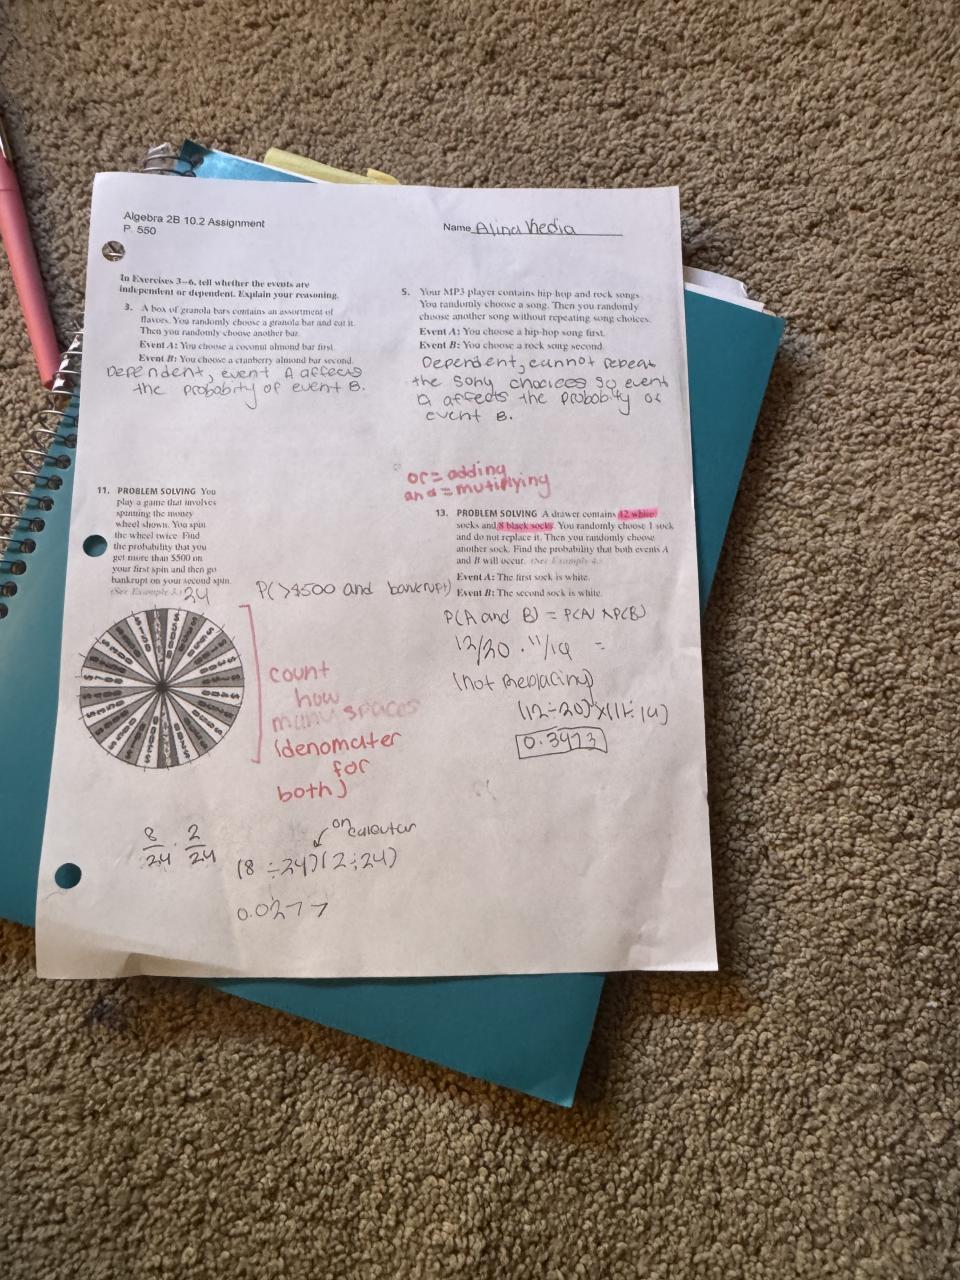 Algebra 2B 10.2 Assignment
P. 550
Name Alina
In Exercises 3–6, tell whether the events are
independent or dependent. Explain your reasoning.
3. A box of granola bars contains an assortment of
flavors. You randomly choose a granola bar and eat it.
Then you randomly choose another bar.
Event A: You choose a coconut almond bar first.
Event B: You choose a cranberry almond bar second.
Dependent, event A affects
the probabity of event B.
5. Your MP3 player contains hip-hop and rock songs.
You randomly choose a song. Then you randomly
choose another song without repeating song choices.
Event A: You choose a hip-hop song first.
Event B: You choose a rock song second.
Dependent, cannot repeat
the song choices so event
a affects the probabity of
event B.
11. PROBLEM SOLVING You
play a game that involves
spinning the money
wheel shown. You spin
the wheel twice. Find
the probability that you
get more than $500 on
your first spin and then go
bankrupt on your second spin.
(See Example 3.) 24
P(>$500 and bankrupt)
count
how
many spaces
(denomater
for
both)
8/24 · 2/24
on
calcutar
(8 ÷ 24)(2 ÷ 24)
0.0277
or = adding
and = mutiplying
13. PROBLEM SOLVING A drawer contains 12 white
socks and 8 black socks. You randomly choose 1 sock
and do not replace it. Then you randomly choose
another sock. Find the probability that both events A
and B will occur. (See Example 4.)
Event A: The first sock is white.
Event B: The second sock is white.
P(A and B) = P(A) x P(B)
12/20 · 11/19 =
(not Replacing)
(12 ÷ 20) x (11 ÷ 19)
0.3473